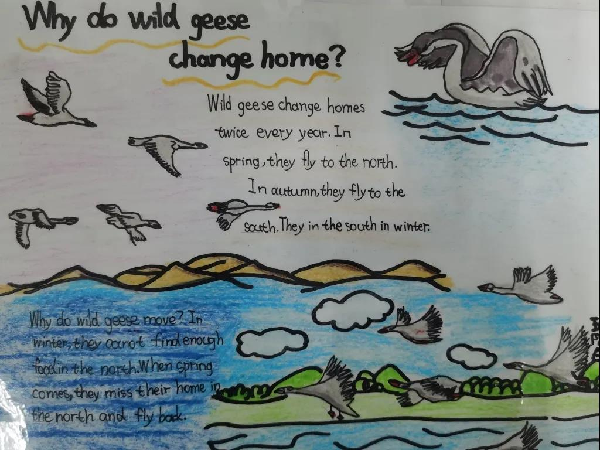 Why do wild geese
change home?
Wild geese change homes
twice every year. In
spring, they fly to the north.
In autumn, they fly to the
south. They in the south in winter.
Why do wild geese move? In
winter, they cannot find enough
food in the north. When spring
comes, they miss their home in
the north and fly back.